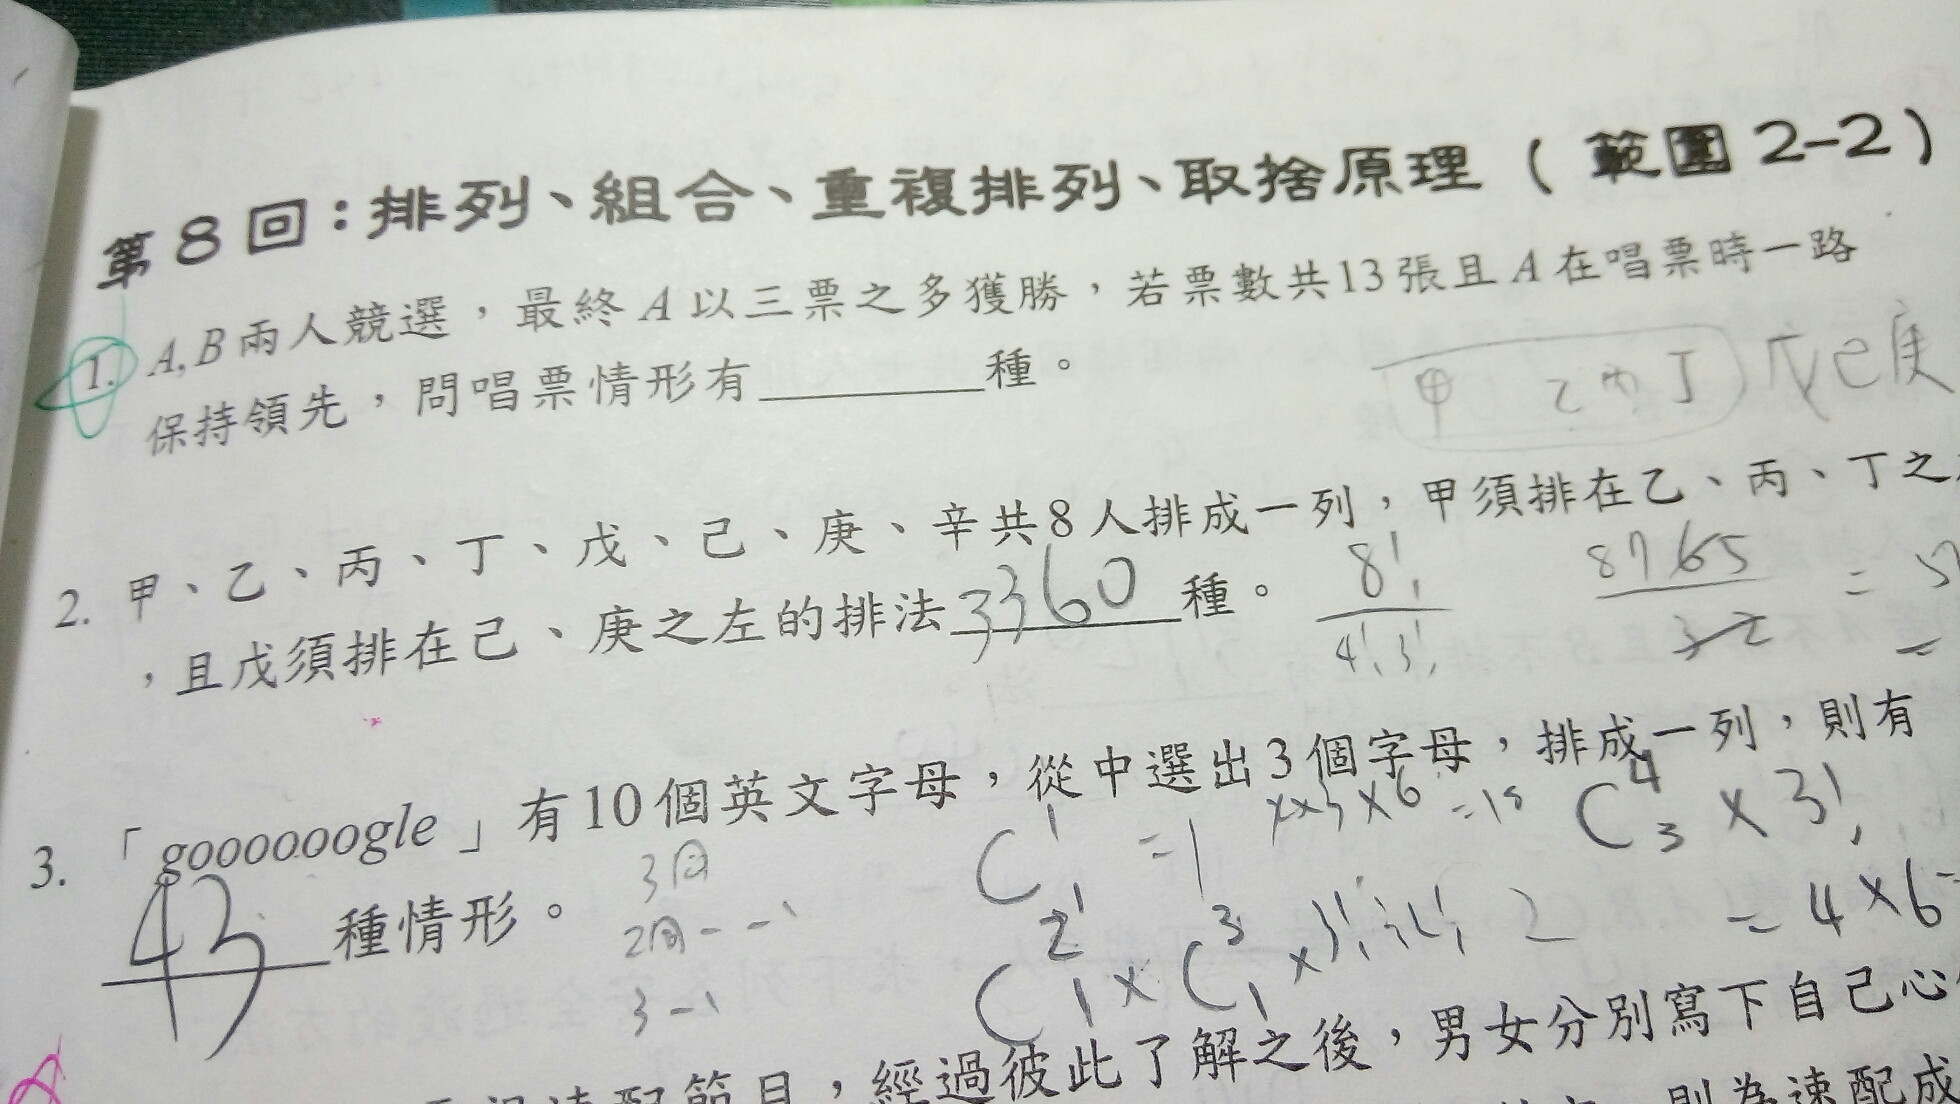 第8回：排列、組合、重複排列、取捨原理（範圍2-2）
1. A, B 兩人競選，最終 A 以三票之多獲勝，若票數共13張且 A 在唱票時一路
保持領先，問唱票情形有________種。
甲 乙 丙 丁 戊己庚
2. 甲、乙、丙、丁、戊、己、庚、辛共8人排成一列，甲須排在乙、丙、丁之
，且戊須排在己、庚之左的排法3360種。
8! / 4!3!
8765 / 3 2 =
3. 「gooooooogle」有10個英文字母，從中選出3個字母，排成一列，則有
43種情形。
3同
2同--、
3-、
C^1_1 =1
×3×6 =18
C^4_3 × 3!
= 4×6=
C^2_1 × C^3_1 ×
節目，經過彼此了解之後，男女分別寫下自己心
則為速配成